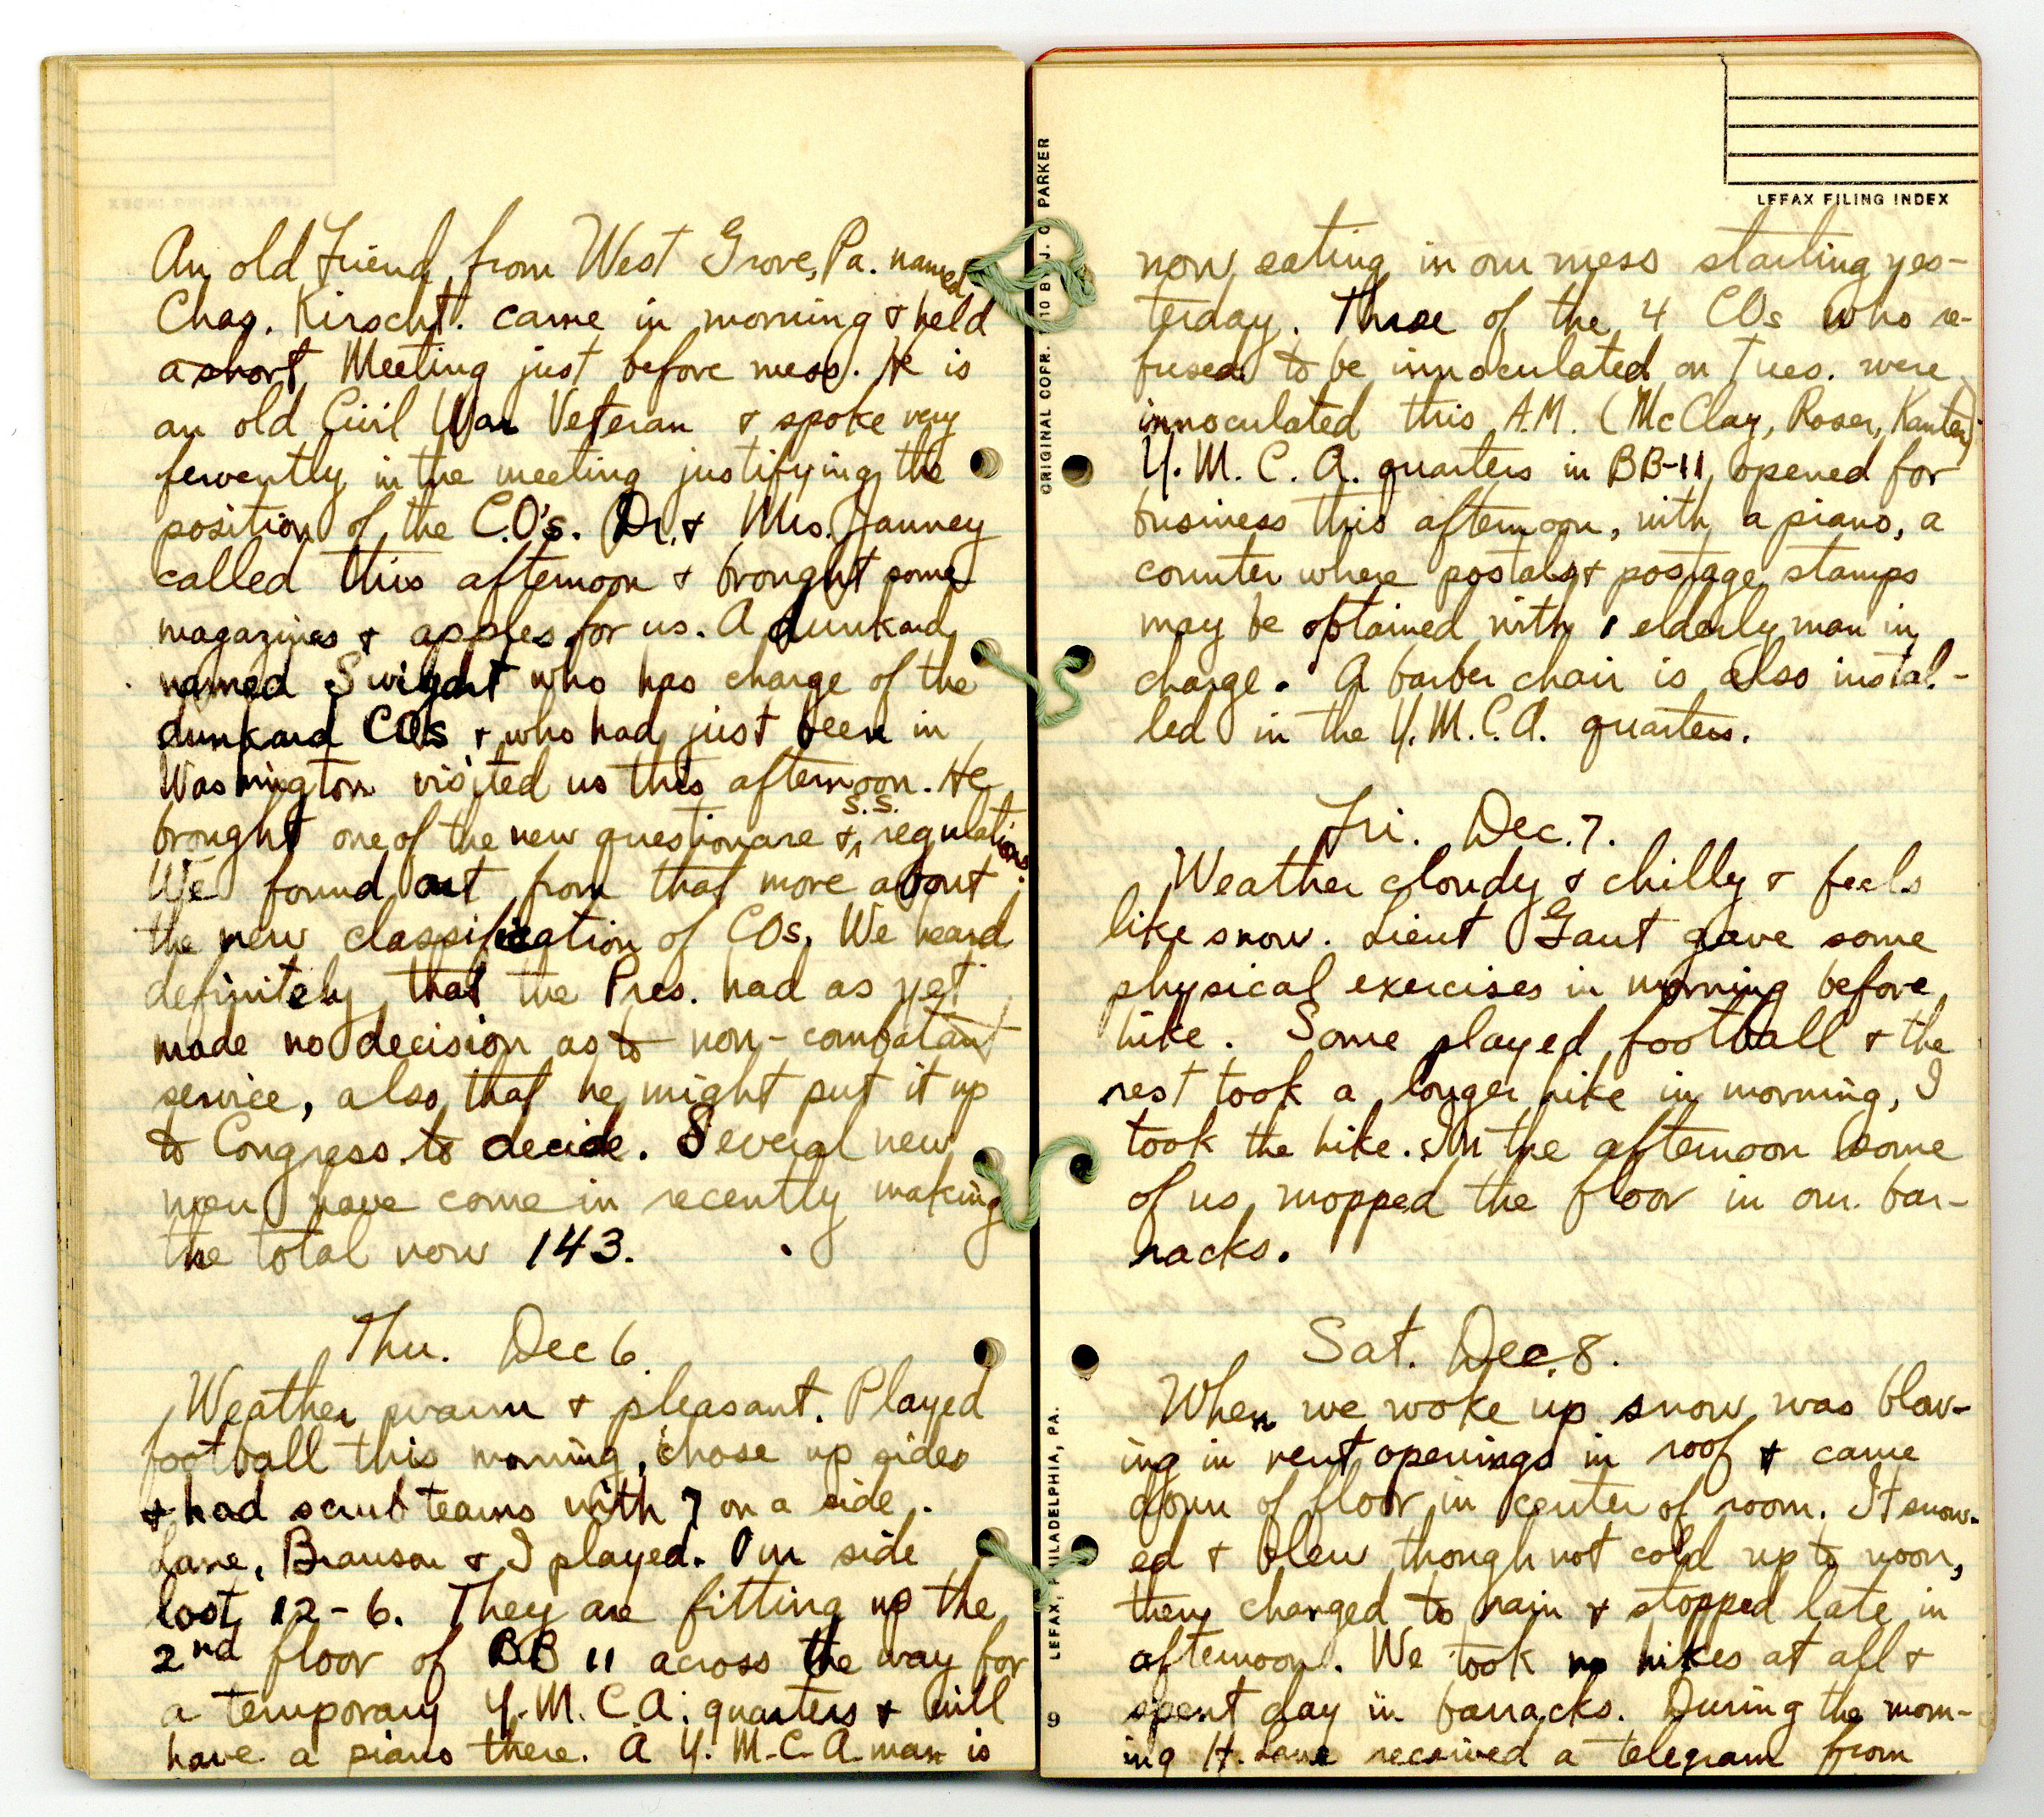 An old Friend from West Grove, Pa. named
Chas. Kirscht. came in morning & held
a short Meeting just before mess. He is
an old Civil War Veteran & spoke very
fervently in the meeting justifying the
position of the C.O's. Dr. & Mrs. Janney
called this afternoon & brought some
magazines & apples for us. A dunkard
named Swigart who has charge of the
dunkard COs & who had just been in
Washington visited us this afternoon. He
brought one of the new questionare & S.S. regulations.
We found out from that more about
the new classification of COs. We heard
definitely that the Pres. had as yet
made no decision as to non-combatant
service, also that he might put it up
to Congress to decide. Several new
men have come in recently making
the total now 143.
Thu. Dec 6
Weather warm & pleasant. Played
football this morning, chose up sides
& had scrub teams with 7 on a side.
Lane, Branson & I played. Our side
lost 12-6. They are fitting up the
2nd floor of BB 11 across the way for
a temporary Y.M.C.A. quarters & will
have a piano there. A Y.M.C.A man is
LEFAX FILING INDEX
ORIGINAL COPR. 1910 BY J. C. PARKER
LEFAX, PHILADELPHIA, PA.
9
LEFAX FILING INDEX
now eating in our mess starting yes-
terday. Three of the 4 COs who re-
fused to be innoculated on Tues. were
innoculated this A.M. (McClay, Roser, Kanter)
Y.M.C.A. quarters in BB-11 opened for
business this afternoon, with a piano, a
counter where postals & postage stamps
may be obtained with 1 elderly man in
charge. A barber chair is also instal-
led in the Y.M.C.A. quarters.
Fri. Dec. 7.
Weather cloudy & chilly & feels
like snow. Lieut Gaut gave some
physical exercises in morning before
hike. Some played football & the
rest took a longer hike in morning, I
took the hike. In the afternoon some
of us mopped the floor in our bar-
racks.
Sat. Dec. 8.
When we woke up snow was blow-
ing in vent openings in roof & came
down of floor in center of room. It snow-
ed & blew though not cold up to noon,
then changed to rain & stopped late in
afternoon. We took no hikes at all &
spent day in barracks. During the morn-
ing H. Lane received a telegram from